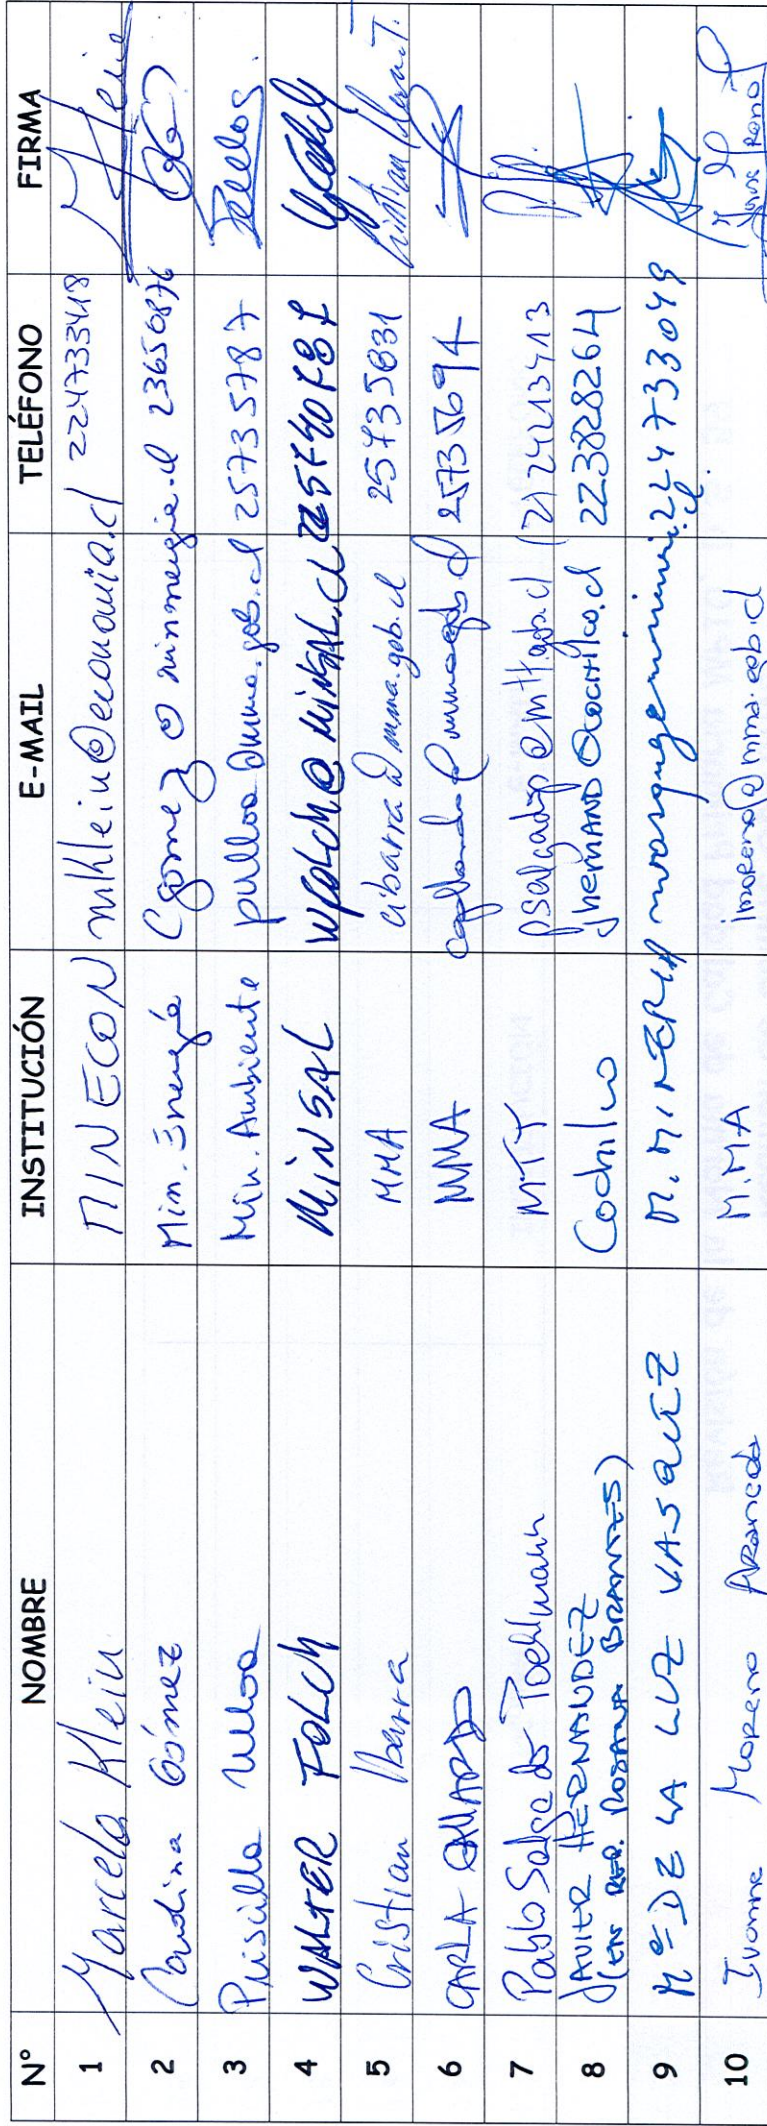 N° NOMBRE INSTITUCIÓN E-MAIL TELÉFONO FIRMA
1 Marcela Klein MINECON mklein@economia.cl 224733418
2 Carolina Gómez Min. Energía cgomez@minenergia.cl 23650876
3 Priscilla Ulloa Min. Ambiente pulloa@mma.gob.cl 25735787
4 WALTER FOLCH MINSAL WFOLCH@MINSAL.Cl
5 Cristian Ibarra MMA cibarra@mma.gob.cl 25735831 Cristian Ibarra T.
6 CARLA GALLARDO MMA 25735694
7 Pablo Salgado MTT psalgado@mtt.gob.cl (2) 24213413
8 JAVIER HERNANDEZ
(EN REP. ROSANA BRANTES) Cochilco jhernand@cochilco.cl 223828264
9 Mª DE LA LUZ VASQUEZ M. MINERIA 224733049
10 Ivonne Moreno Araneda M.MA imoreno@mma.gob.cl Ivonne Moreno